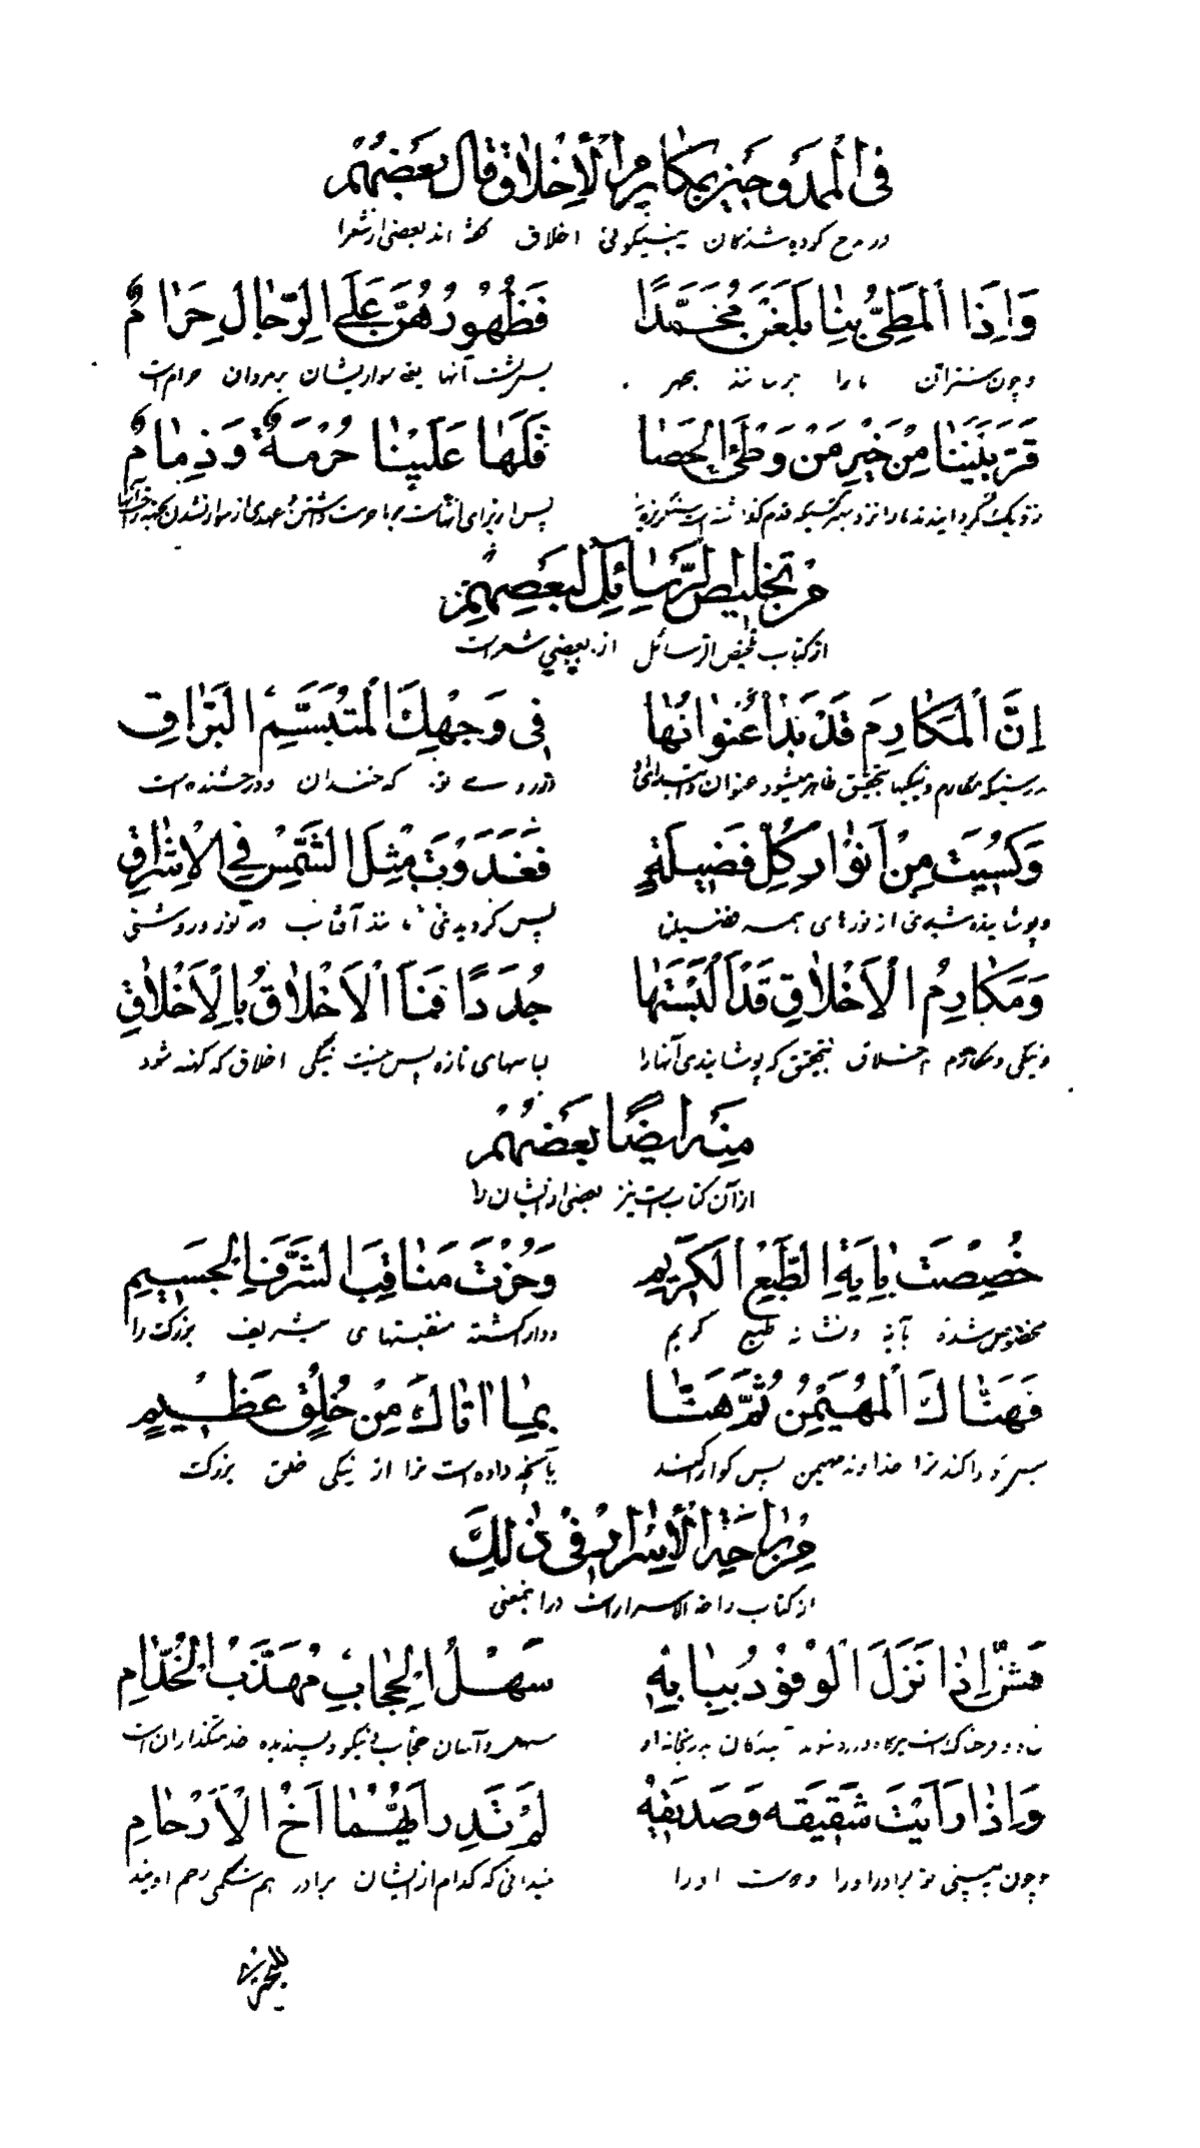 فِی الْمَمْدُوحِینَ بِمَکَارِمِ الْأَخْلَاقِ قَالَ بَعْضُهُمْ
در مدح کرده شدکان بنیکوئی اخلاق گفته اند بعضی از شعرا
وَاِذَا الْمَطِیُّ بِنَا بَلَغْنَ مُحَمَّدًا فَظُهُورُهُنَّ عَلَی الرِّجَالِ حَرَامٌ
و چون شتران ما را برسانند بمحمد پس پشت آنها یعنی سواریشان بر مردان حرام است
قَرَّبْنَنَا مِنْ خَیْرِ مَنْ وَطِئَ الْحَصَا فَلَهَا عَلَیْنَا حُرْمَةٌ وَذِمَامٌ
نزدیک گردانیدند ما را پس از برای آنهاست بر ما حرمت داشتن و عهدی از سوار نشدن
مِنْ تَخْلِیصِ الرَّسَائِلِ لِبَعْضِهِمْ
از کتاب تلخیص الرسائل از بعضی شعراست
اِنَّ الْمَکَارِمَ قَدْ بَدَا عُنْوَانُهَا فِی وَجْهِكَ الْمُتَبَسِّمِ الْبَرَّاقِ
بدرستیکه مکارم و نیکیها بتحقیق ظاهر میشود عنوان در روی تو که خندان و درخشنده است
وَکُسِیتَ مِنْ اَنْوَارِ کُلِّ فَضِیلَةٍ فَغَدَوْتَ مِثْلَ الشَّمْسِ فِی الْاِشْرَاقِ
و پوشانیده شدی از نورهای همه فضیلتی پس گردیدی مانند آفتاب در نور و روشنی
وَمَکَارِمُ الْاَخْلَاقِ قَدْ اَلْبَسْتَهَا جُدَدًا فَمَا الْاَخْلَاقُ بِالْاَخْلَاقِ
و نیکی و مکارم اخلاق بتحقیق که پوشانیدی آنها را لباسهای تازه پس نیست نیکی اخلاق که کهنه شود
مِنْهُ اَیْضًا بَعْضُهُمْ
از آن کتابست نیز بعضی از ایشان را
خُصِصْتَ بِاٰیَةِ الطَّبْعِ الْکَرِیمِ وَحُزْتَ مَنَاقِبَ الشَّرَفِ الْجَسِیمِ
مخصوص شدی بآیه و نشانه طبع کریم و دارا گشته منقبتهای شریف بزرگ را
فَهَنَّاكَ الْمُهَیْمِنُ ثُمَّ هَنَّا بِمَا اٰتَاكَ مِنْ خُلُقٍ عَظِیمٍ
کند ترا خداوند مهیمن پس گوارا کند بآنچه داده است ترا از نیکی خلق بزرگ
مِنْ رَاحَةِ الْاَسْرَارِ فِی ذٰلِكَ
از کتاب راحة الاسرار است در اینمعنی
هَشٌّ اِذَا نَزَلَ الْوُفُودُ بِبَابِهِ سَهْلُ الْحِجَابِ مُهَذَّبُ الْخُدَّامِ
سهل و آسان حجاب و نیکو و پسندیده خدمتگذاران است
وَاِذَا رَاَیْتَ شَقِیقَهُ وَصَدِیقَهُ لَمْ تَدْرِ اَیُّهُمَا اَخُ الْاَرْحَامِ
و چون ببینی تو برادر او را و دوست او را نمیدانی که کدام از ایشان برادر هم شکمی رحم اویند